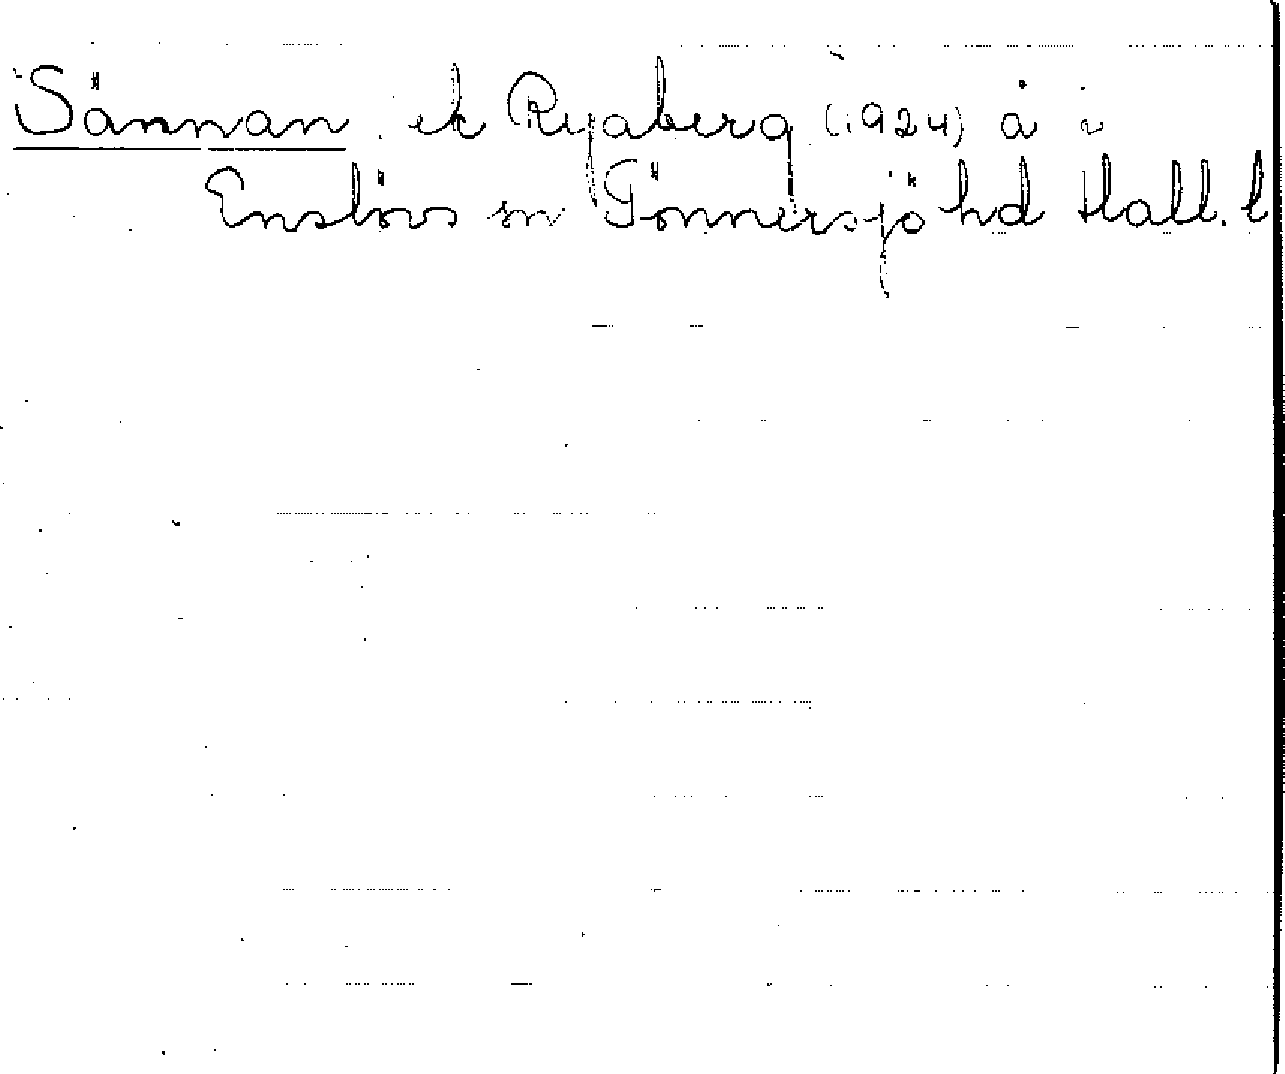 Sännan. ek Ryaberg (1924) å i
Enslövs sn Tönnersjö hd Hall. l